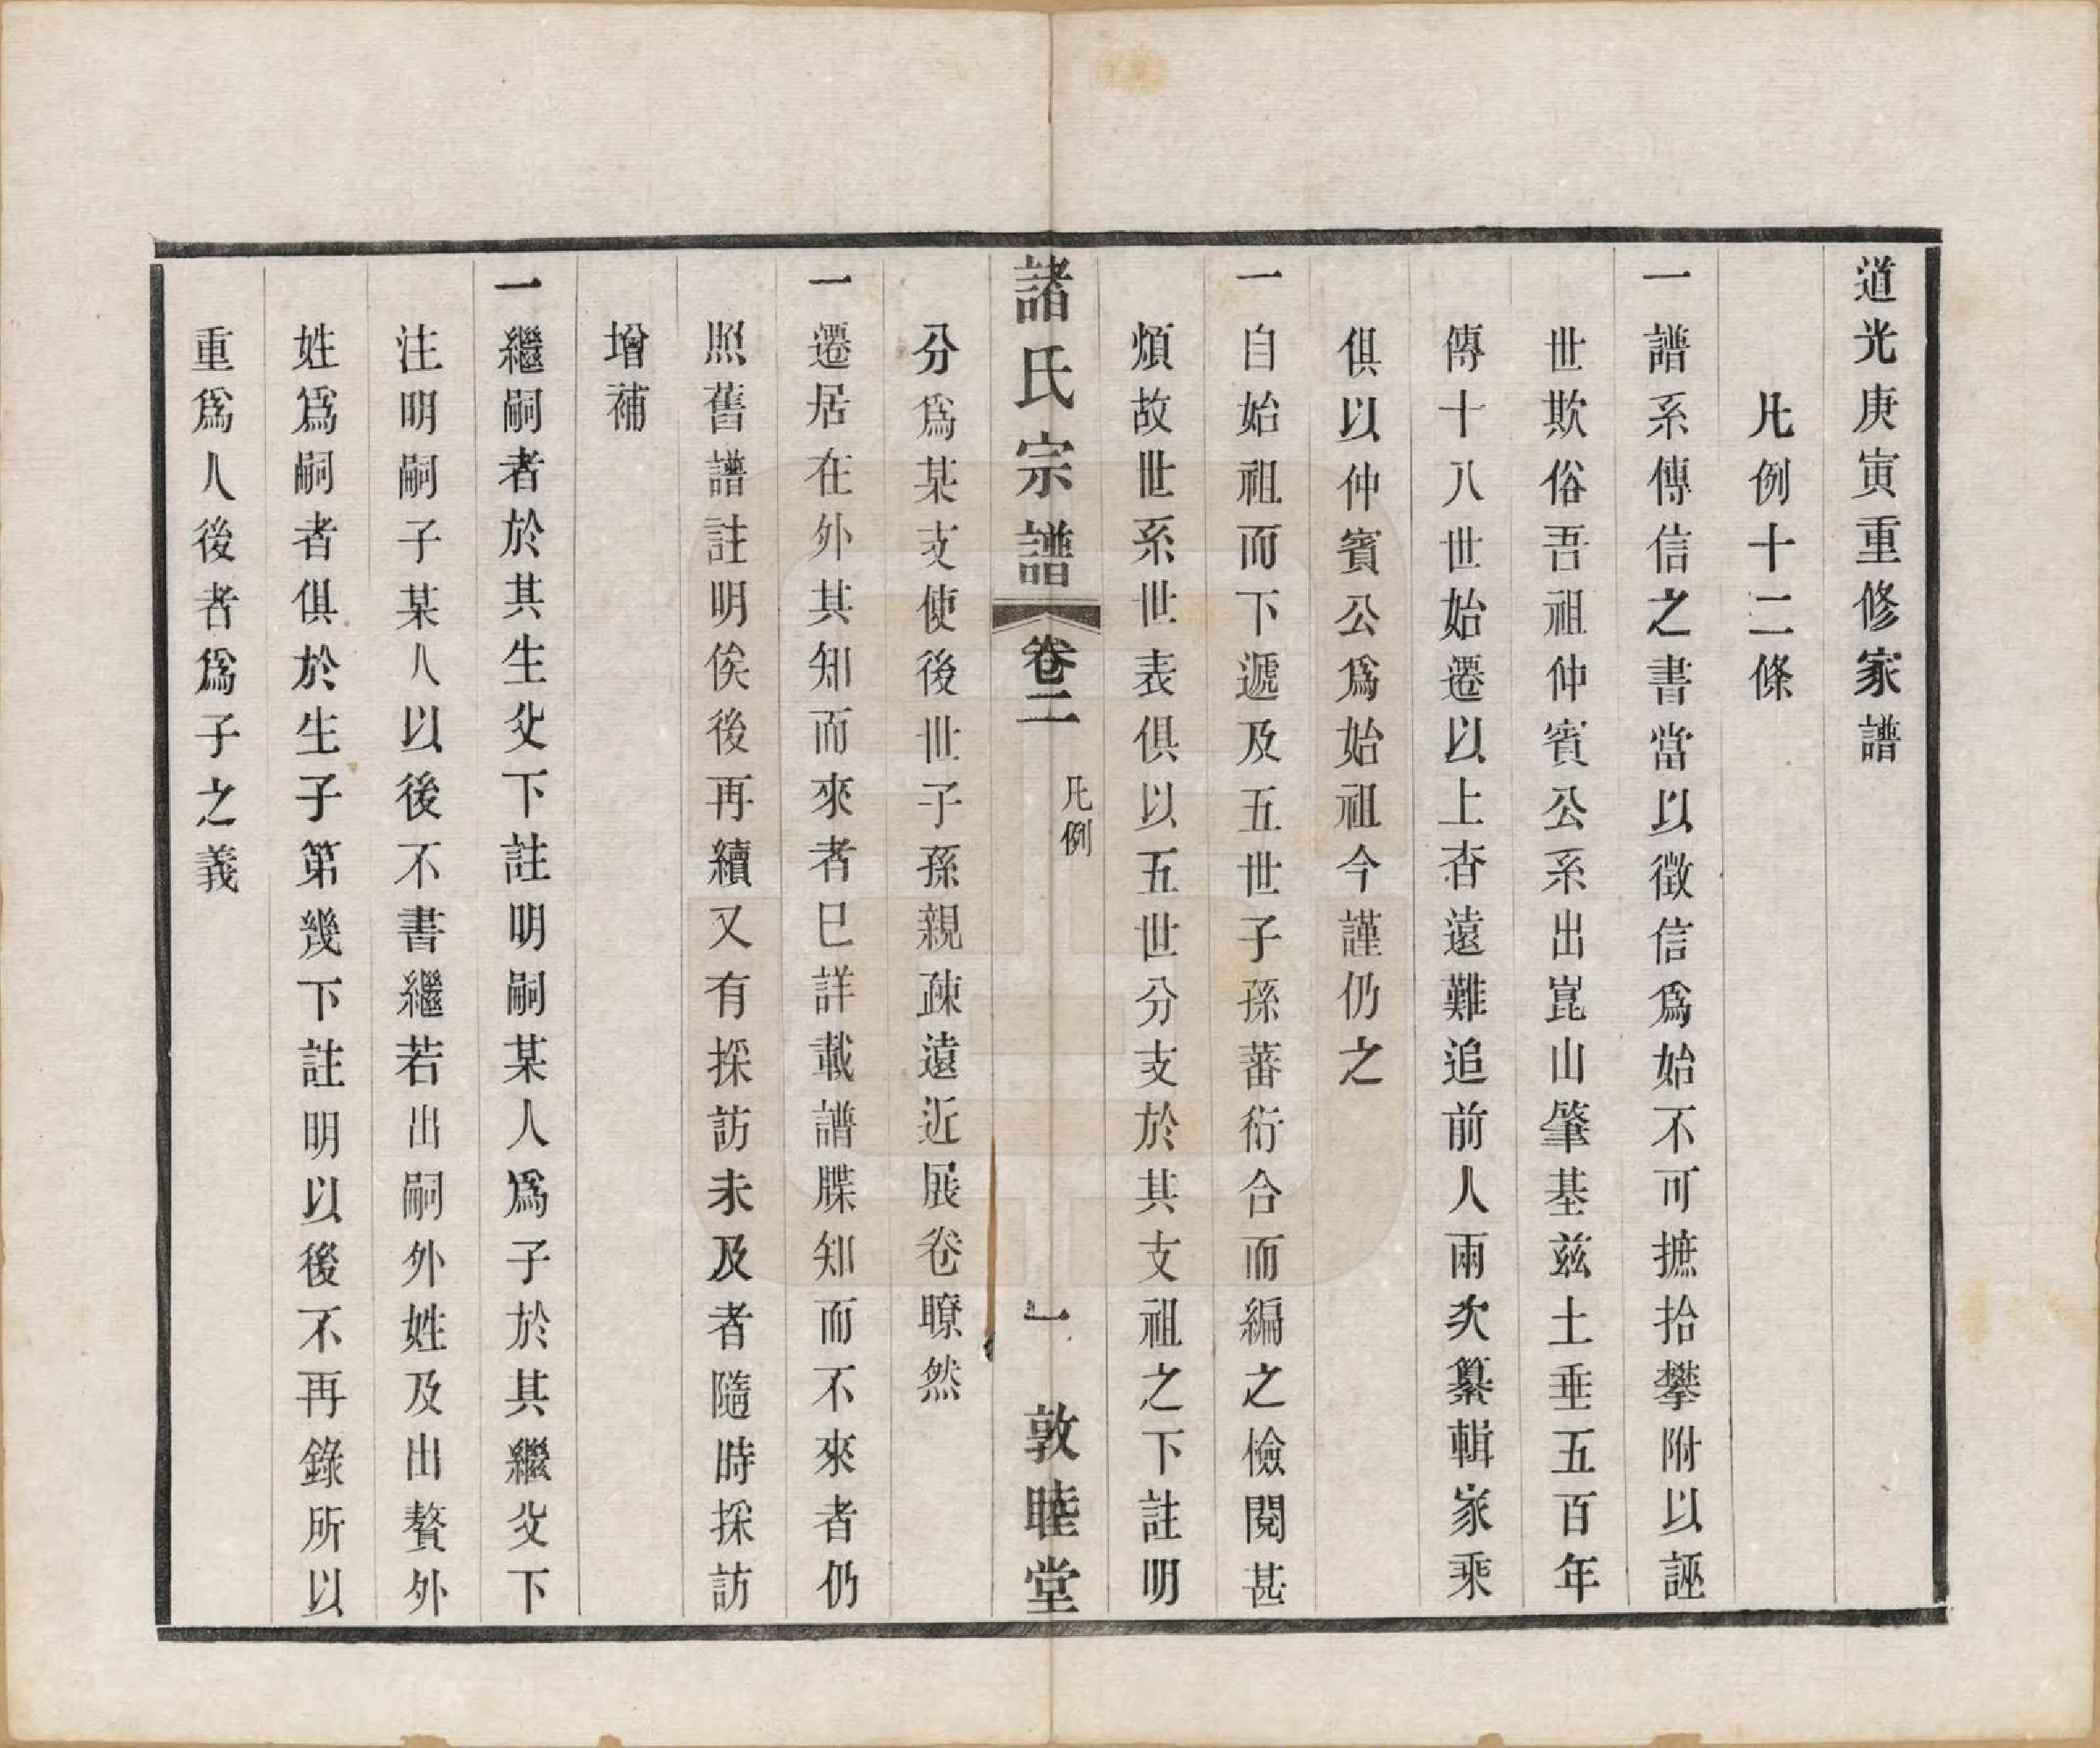 道光庚寅重修家譜
凡例十二條
一譜系傳信之書當以徵信爲始不可摭拾攀附以誣
世欺俗吾祖仲賓公系出崑山肇基兹土垂五百年
傳十八世始遷以上杳遠難追前人兩次纂輯家乘
俱以仲賓公爲始祖今謹仍之
一自始祖而下遞及五世子孫蕃衍合而編之檢閱甚
煩故世系世表俱以五世分支於其支祖之下註明
諸氏宗譜 卷二 凡例 一 敦睦堂
分爲某支使後世子孫親疎遠近展卷瞭然
一遷居在外其知而來者已詳載譜牒知而不來者仍
照舊譜註明俟後再續又有採訪未及者隨時採訪
增補
一繼嗣者於其生父下註明嗣某人爲子於其繼父下
注明嗣子某人以後不書繼若出嗣外姓及出贅外
姓爲嗣者俱於生子第幾下註明以後不再錄所以
重爲人後者爲子之義